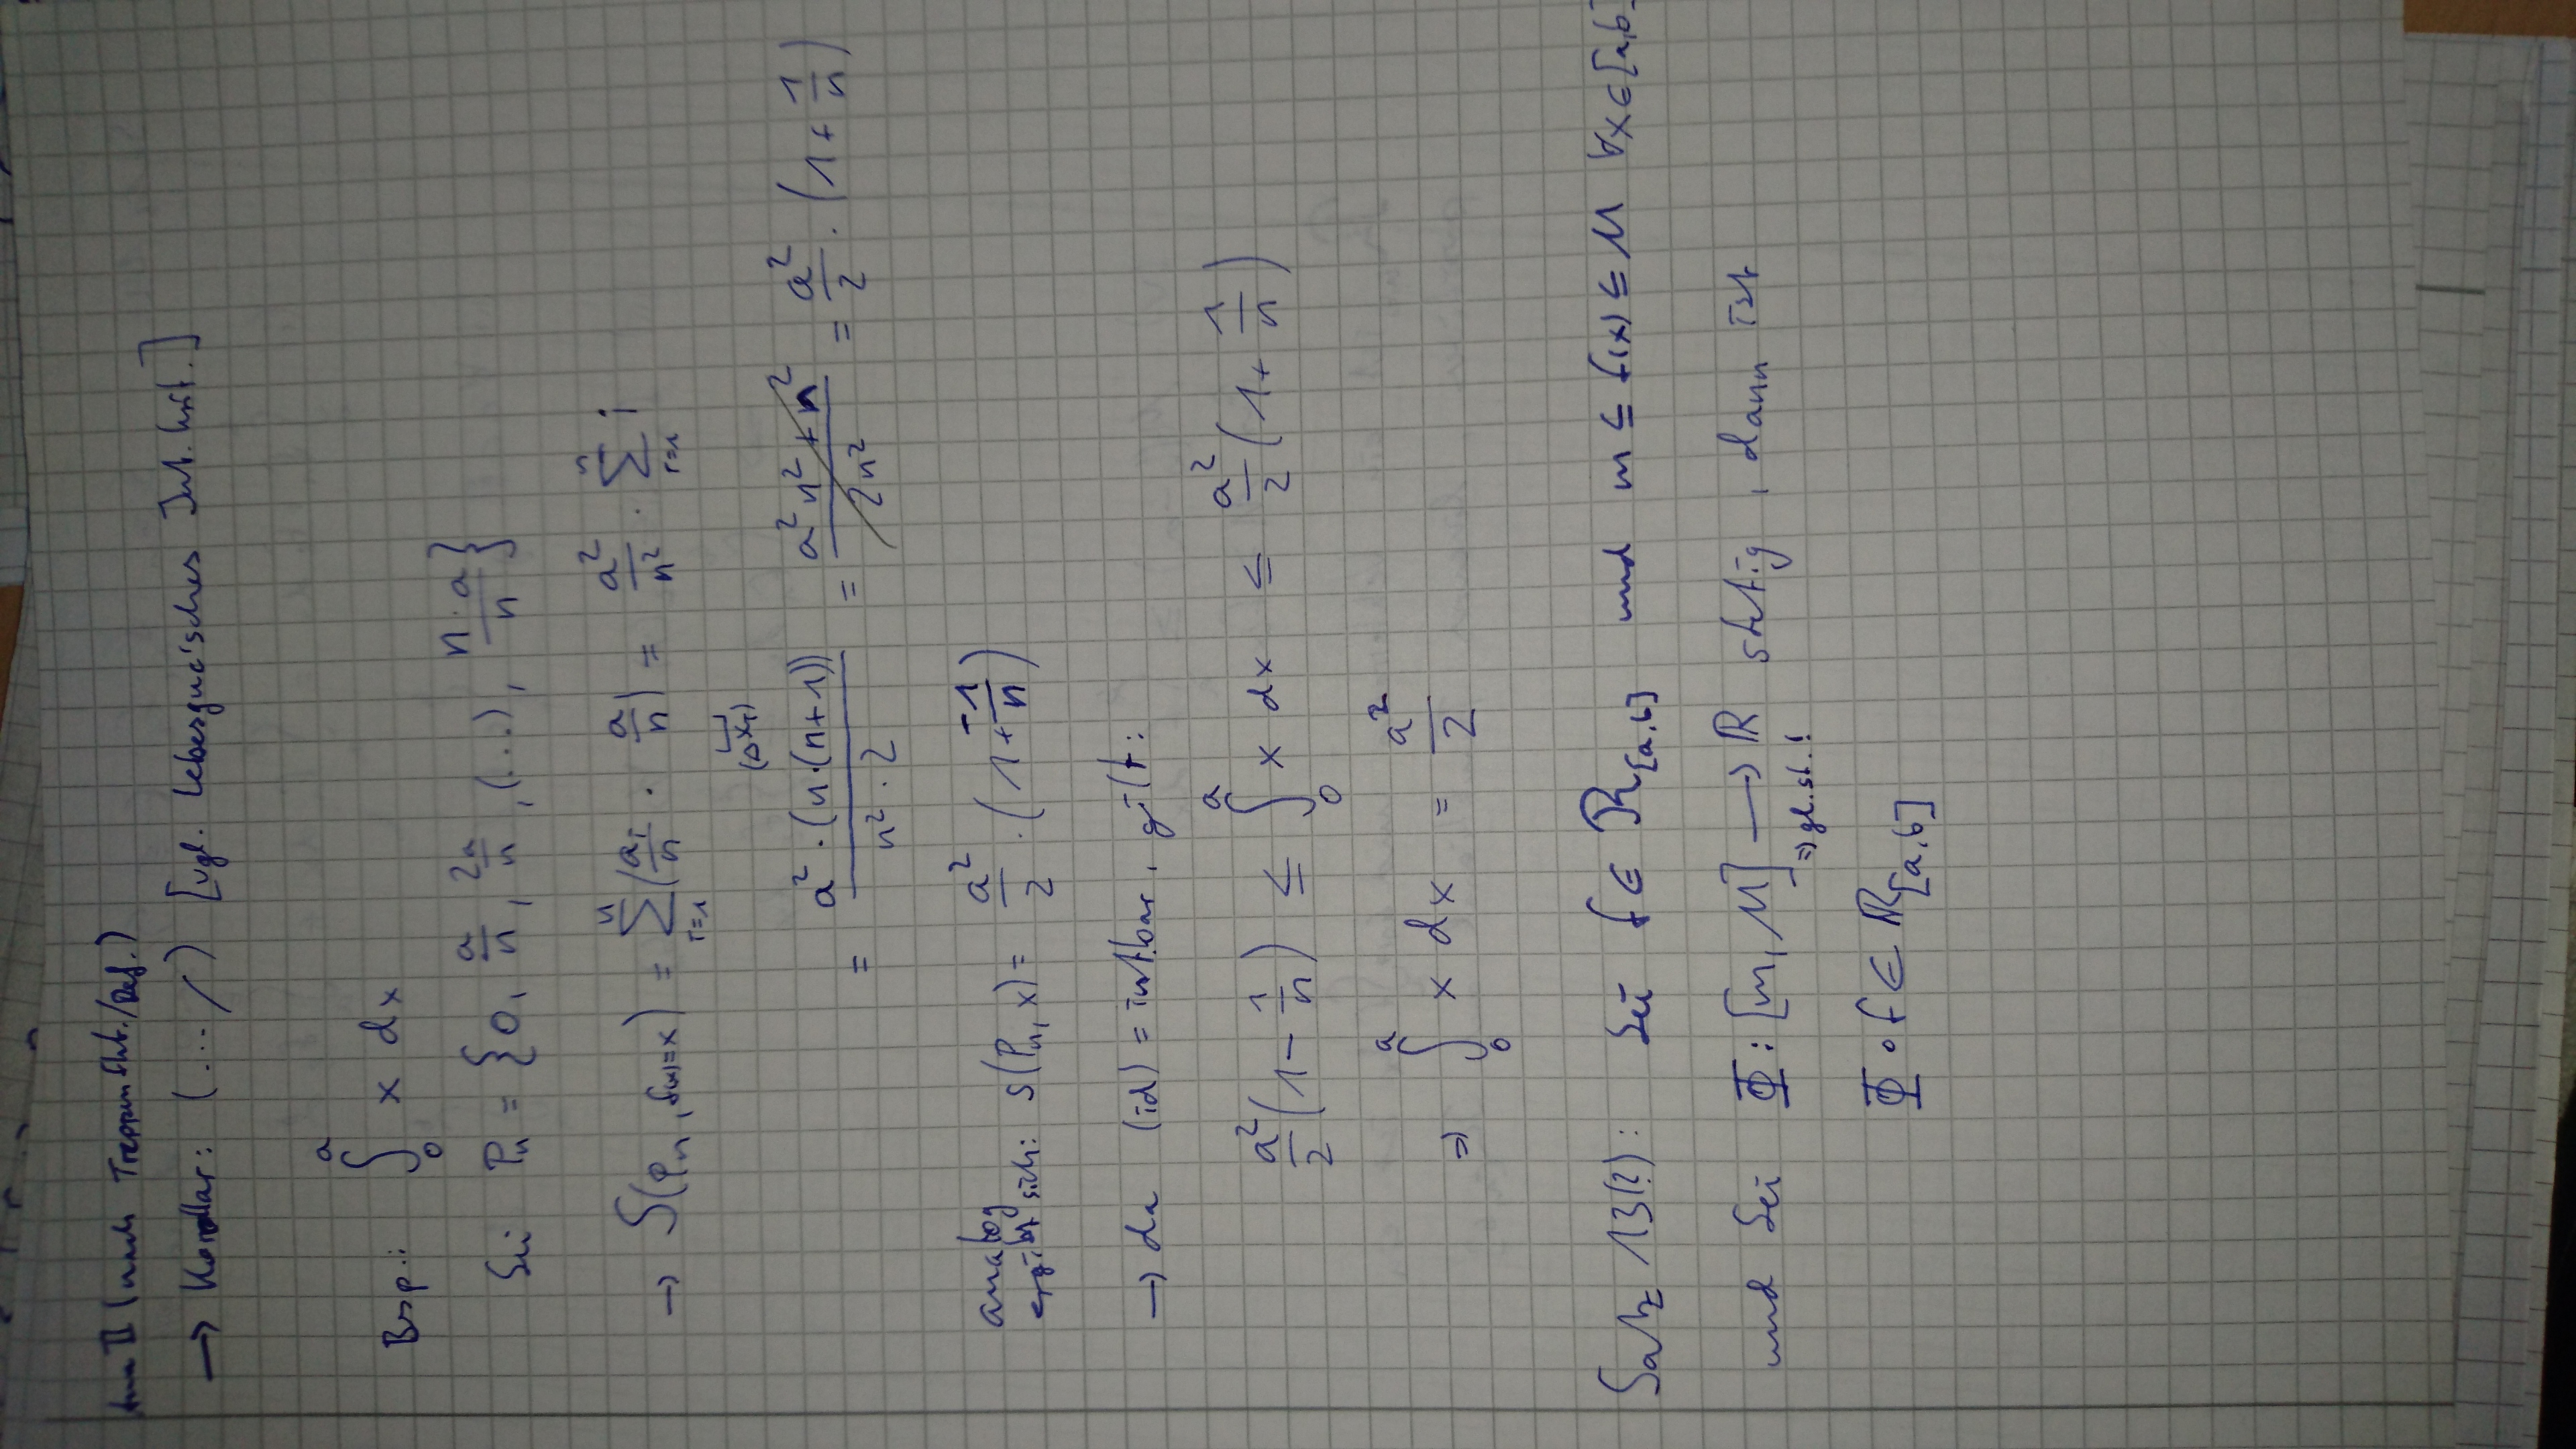 Anm II (nach Treppenfkt./Def.)
→ Korollar: (... /) [vgl. Lebesgue'sches Int.krit.]
Bsp.: ∫₀ᵃ x dx
Sei Pₙ = {0, a/n, 2a/n, (...), n·a/n}
→ S(Pₙ, f(x)=x) = ∑ᵢ₌₁ⁿ (ai/n · a/n) = a²/n² · ∑ᵢ₌₁ⁿ i
(Δxᵢ)
= a²·(n·(n+1))/(n²·2) = a²n²+n²/2n² = a²/2 · (1+1/n)
analog
ergibt sich: s(Pₙ, x) = a²/2 · (1+ -1/n)
→ da (id) = intbar, gilt:
a²/2 (1 - 1/n) ≤ ∫₀ᵃ x dx ≤ a²/2 (1 + 1/n)
⇒ ∫₀ᵃ x dx = a²/2
Satz 13(?): Sei f ∈ R[a,b] und m ≤ f(x) ≤ M ∀x∈[a,b]
und sei Φ: [m, M] → ℝ stetig, dann ist
⇒ gl.st.!
Φ∘f ∈ R[a,b]